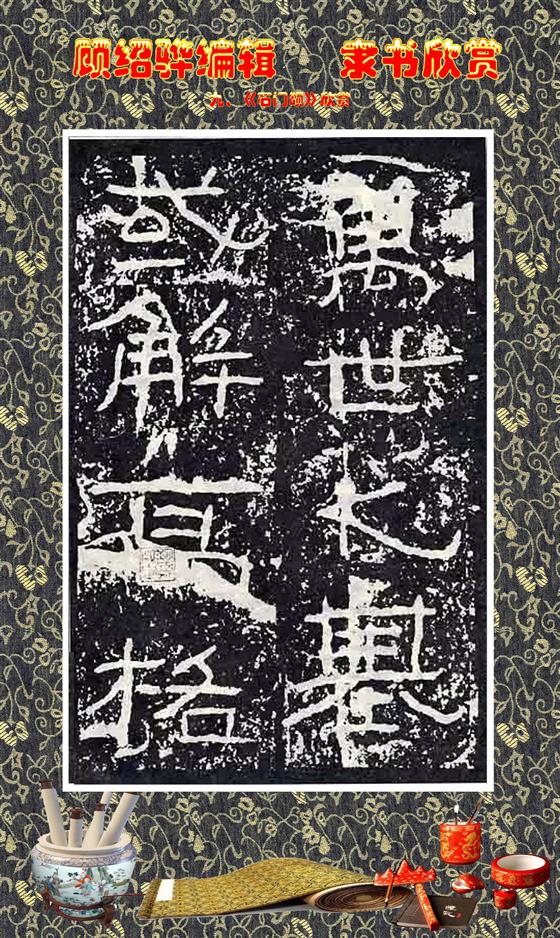 顾绍骅编辑 隶书欣赏
九、《石门颂》欣赏
萬世之基
或解高格